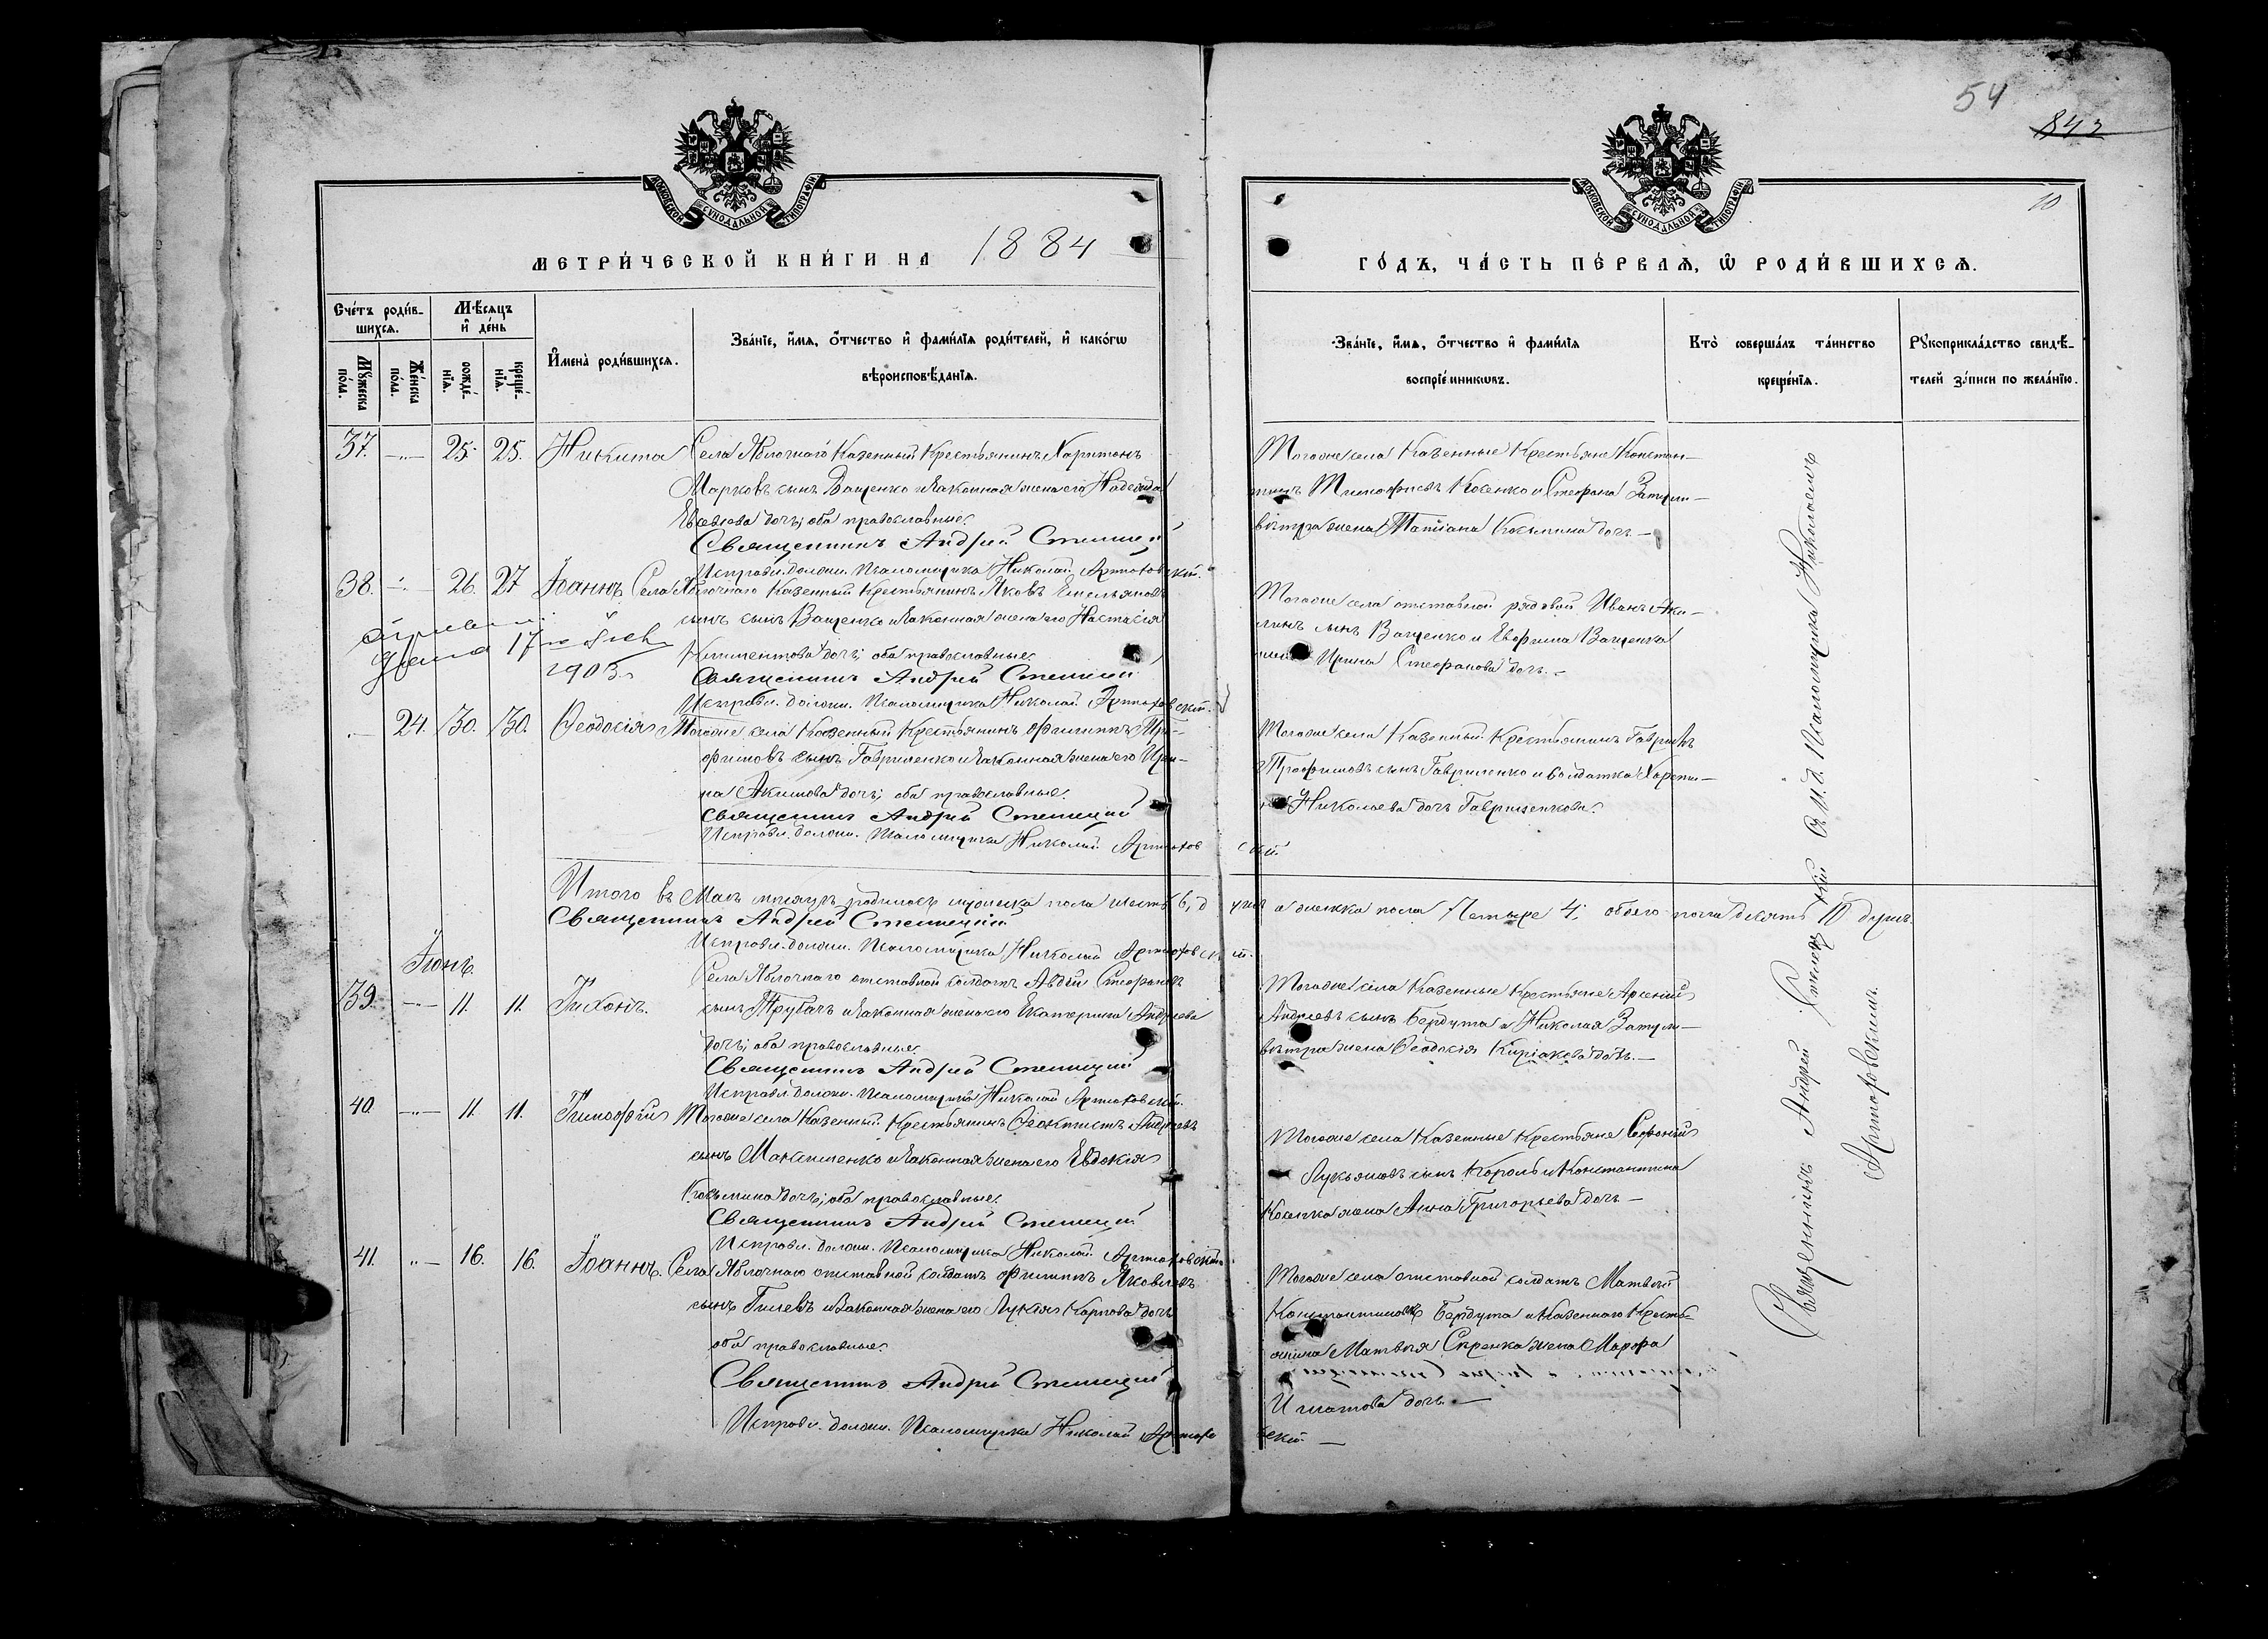 54
843
10
МОСКОВСКОЙ СѴНОДАЛЬНОЙ ТИПОГРАФІИ
МОСКОВСКОЙ СѴНОДАЛЬНОЙ ТИПОГРАФІИ
МЕТРИ́ЧЕСКОЙ КНИ́ГИ НА 1884
ГО́ДЪ, ЧА́СТЬ ПЕ́РВАѦ, Ѡ҆ РОДИ́ВШИХСѦ.
Сче́тъ роди́в-
шихсѧ.
Мѣ́сѧцъ
и҆ де́нь
Мꙋ́жеска
по́ла.
Же́нска
по́ла.
рожде́-
нїѧ.
креще́-
нїѧ.
И҆мена̀ роди́вшихсѧ.
Зва́нїе, и҆́мѧ, ѻ҆́тчество и҆ фами́лїѧ роди́телей, и҆ како́гѡ
вѣроисповѣ́данїѧ.
Зва́нїе, и҆́мѧ, ѻ҆́тчество и҆ фами́лїѧ
воспрїе́мникѡвъ.
Кто̀ соверша́лъ та́инство
креще́нїѧ.
Рꙋкоприкла́дство свидѣ́-
телей за́писи по жела́нїю.
37. 25. 25. Никита Села Яблочнаго Казенный Крестьянинъ Харитонъ
Марковъ сынъ Ващенко и законная жена его Надежда
дочь; оба православные.
Священникъ Андрей
Исправл. должн. Псаломщика Николай Артюховскій.
Тогоже села Казенные Крестьяне Констан-
тинъ Тимофіевъ Косенко и Стефана
жена Татіана Косьмина дочь.—
38. 26. 27 Іоаннъ Села Яблочнаго Казенный Крестьянинъ Яковъ Емельяновъ
сынъ Ващенко и законная жена его Настасія
Климентова дочь; оба православные.
Священникъ Андрей
Исправл. должн. Псаломщика Николай Артюховскій.
17
1903
Тогоже села отставной рядовой Иванъ
сынъ Ващенко и Евфима Ващенка
Ирина Стефанова дочь.—
24. 30. 30. Ѳеодосія Тогоже села Казенный Крестьянинъ Филиппъ Тро-
фимовъ сынъ Гавриленко и законная жена его Ири-
на Акимова дочь; оба православные.
Священникъ Андрей
Исправл. должн. Псаломщика Николай Артюховскій.
Тогоже села Казенный Крестьянинъ Гавріилъ
Трофимовъ сынъ Гавриленко и солдатка
Николаева дочь Гавриленкова.
Итого въ Маѣ мѣсяцѣ родилось мужеска пола шесть 6, а женска пола Четыре 4; обоего пола десять 10 душъ.
Священникъ Андрей
Исправл. должн. Псаломщика Николай Артюховскій.
Іюнь.
39. 11. 11. Тихонъ. Села Яблочнаго отставной солдатъ Авдій Стефановъ
сынъ Трубачъ и законная жена его Екатерина Андреева
дочь; оба православные.
Священникъ Андрей
Исправл. должн. Псаломщика Николай Артюховскій.
Тогоже села Казенные Крестьяне Арсеній
Андреевъ сынъ Бердута и Николая
жена Ѳеодосія Киріакова дочь.—
40. 11. 11. Тимофій Тогоже села Казенный Крестьянинъ Ѳеоктистъ Андреевъ
сынъ Максименко и законная жена его Евдокія
Косьмина дочь; оба православные.
Священникъ Андрей
Исправл. должн. Псаломщика Николай Артюховскій.
Тогоже села Казенные Крестьяне Софоній
Лукьяновъ сынъ Король и Константина
Косенка жена Анна Григорьева дочь—
41. 16. 16. Іоаннъ. Села Яблочнаго отставной солдатъ Филиппъ Яковлевъ
сынъ и законная жена его Лукія Карпова дочь
оба православные.
Священникъ Андрей
Исправл. должн. Псаломщика Николай Артюховскій.—
Тогоже села отставной солдатъ Матвей
Константиновъ Бердута и Казеннаго Кресть-
янина Матвѣя Скренка жена Марфа
Игнатова дочь.—
Священникъ Андрей съ И. д. Псаломщика Николаемъ
Артюховскимъ.